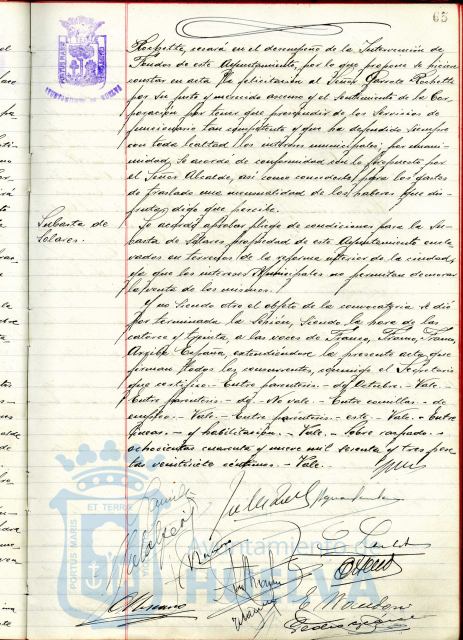 65
Rochette, cesará en el desempeño de la Intervención de
Fondos de este Ayuntamiento, por lo que propone se hiciera
constar en acta la felicitación al Señor Garrote Rochette
por su justo y merecido ascenso y el sentimiento de la Cor-
poración por tener que prescindir de los servicios de
funcionario tan competente y que ha defendido siempre
con toda lealtad los intereses municipales; por unani-
midad, se acordó de conformidad con lo propuesto por
el Señor Alcalde, así como concederle para los gastos
de traslado una mensualidad de los haberes que dis-
fruta, digo que percibe.
Subasta de
Solares.
Se acordó aprobar pliego de condiciones para la Su-
basta de Solares propiedad de este Ayuntamiento encla-
vados en terrenos de la reforma interior de la ciudad,
ya que los intereses Municipales no permiten demorar
la venta de los mismos.
Y no siendo otro el objeto de la convocatoria se dió
por terminada la Sesión, siendo la hora de las
catorce y treinta, a las voces de Franco, Franco, Franco,
Arriba España, extendiéndose la presente acta que
firman todos los concurrentes, conmigo el Secretario
que certifico.- Entre paréntesis - de Octubre - Vale -
Entre paréntesis - de - No vale - Entre comillas - de
empleo - Vale - Entre paréntesis - este - Vale - Entre
líneas - y habilitación - Vale - sobre raspado -
ochocientas cuarenta y nueve mil sesenta y tres pese-
tas veintisiete céntimos - Vale.
PORTUS MARIS ET TERRAE CUSTODIA
Ayuntamiento de
HUELVA